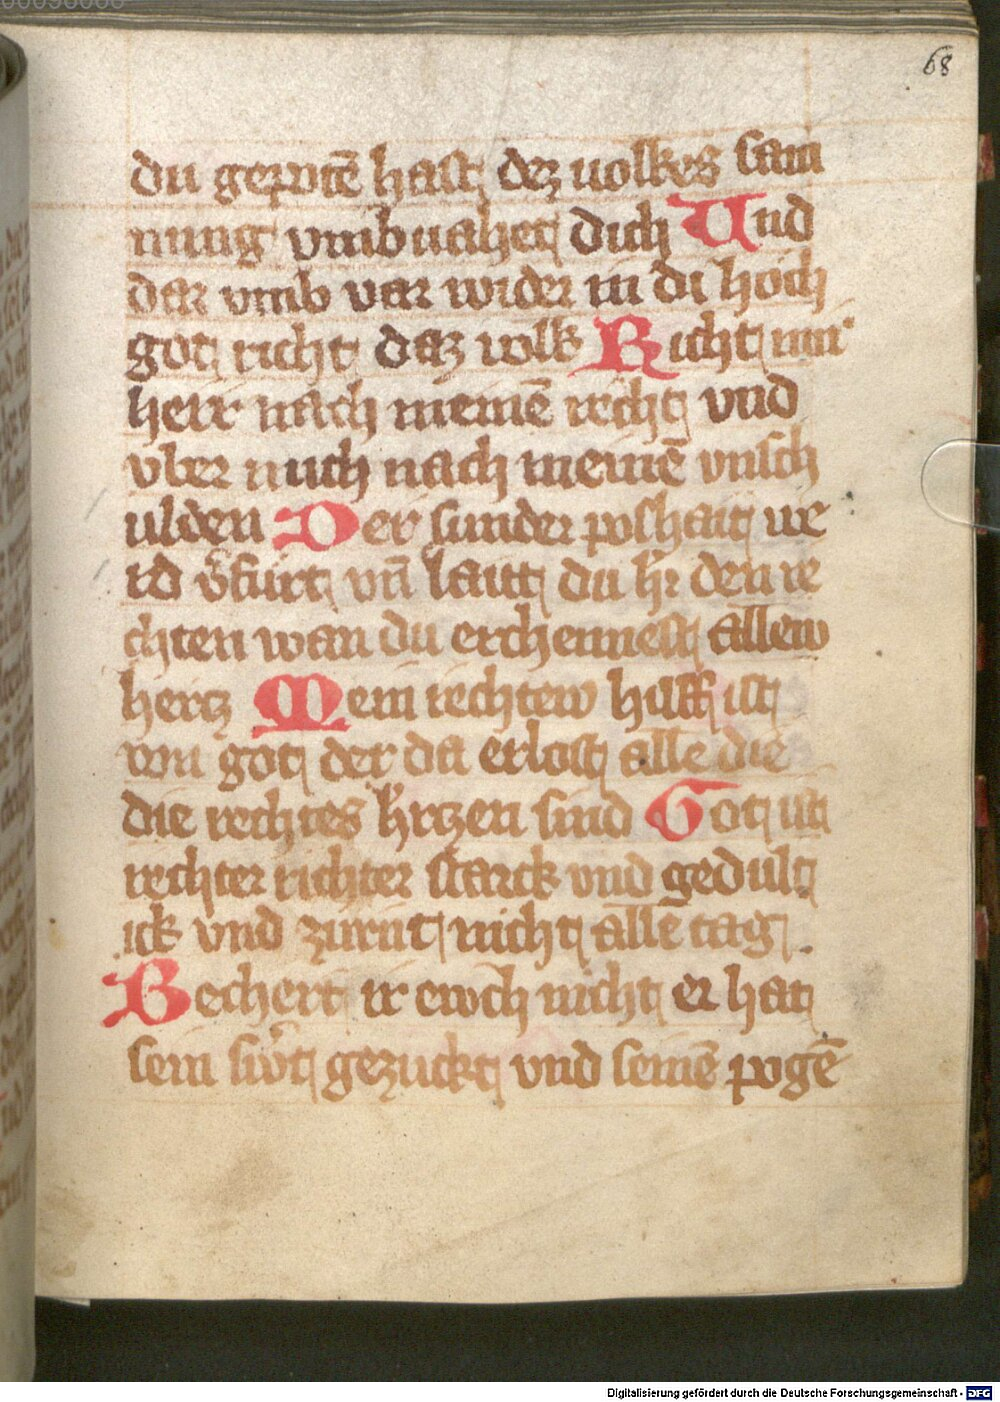 68
du gepotē hast dez uolkes sam
nung vmbuahet dich Und
dar vmb var wider in di hoch
got richt daz volk Richt mir
herr nach meinē recht vnd
vber mich nach meinē vnsch
ulden Der sunder poshait we
rd v̄furt vn̄ laitt du hr̄ den re
chten wan du erchennest allew
hertz Mein rechtew hilff ist
von got der da erlost alle die
die rechtes h̄rzen sind Got ist
rechter richter starck vnd gedult
ick vnd zurnt nicht alle tag
Bechert ir ewch nicht er hat
sein sw̄t gezuckt vnd seinē pogē
Digitalisierung gefördert durch die Deutsche Forschungsgemeinschaft - DFG